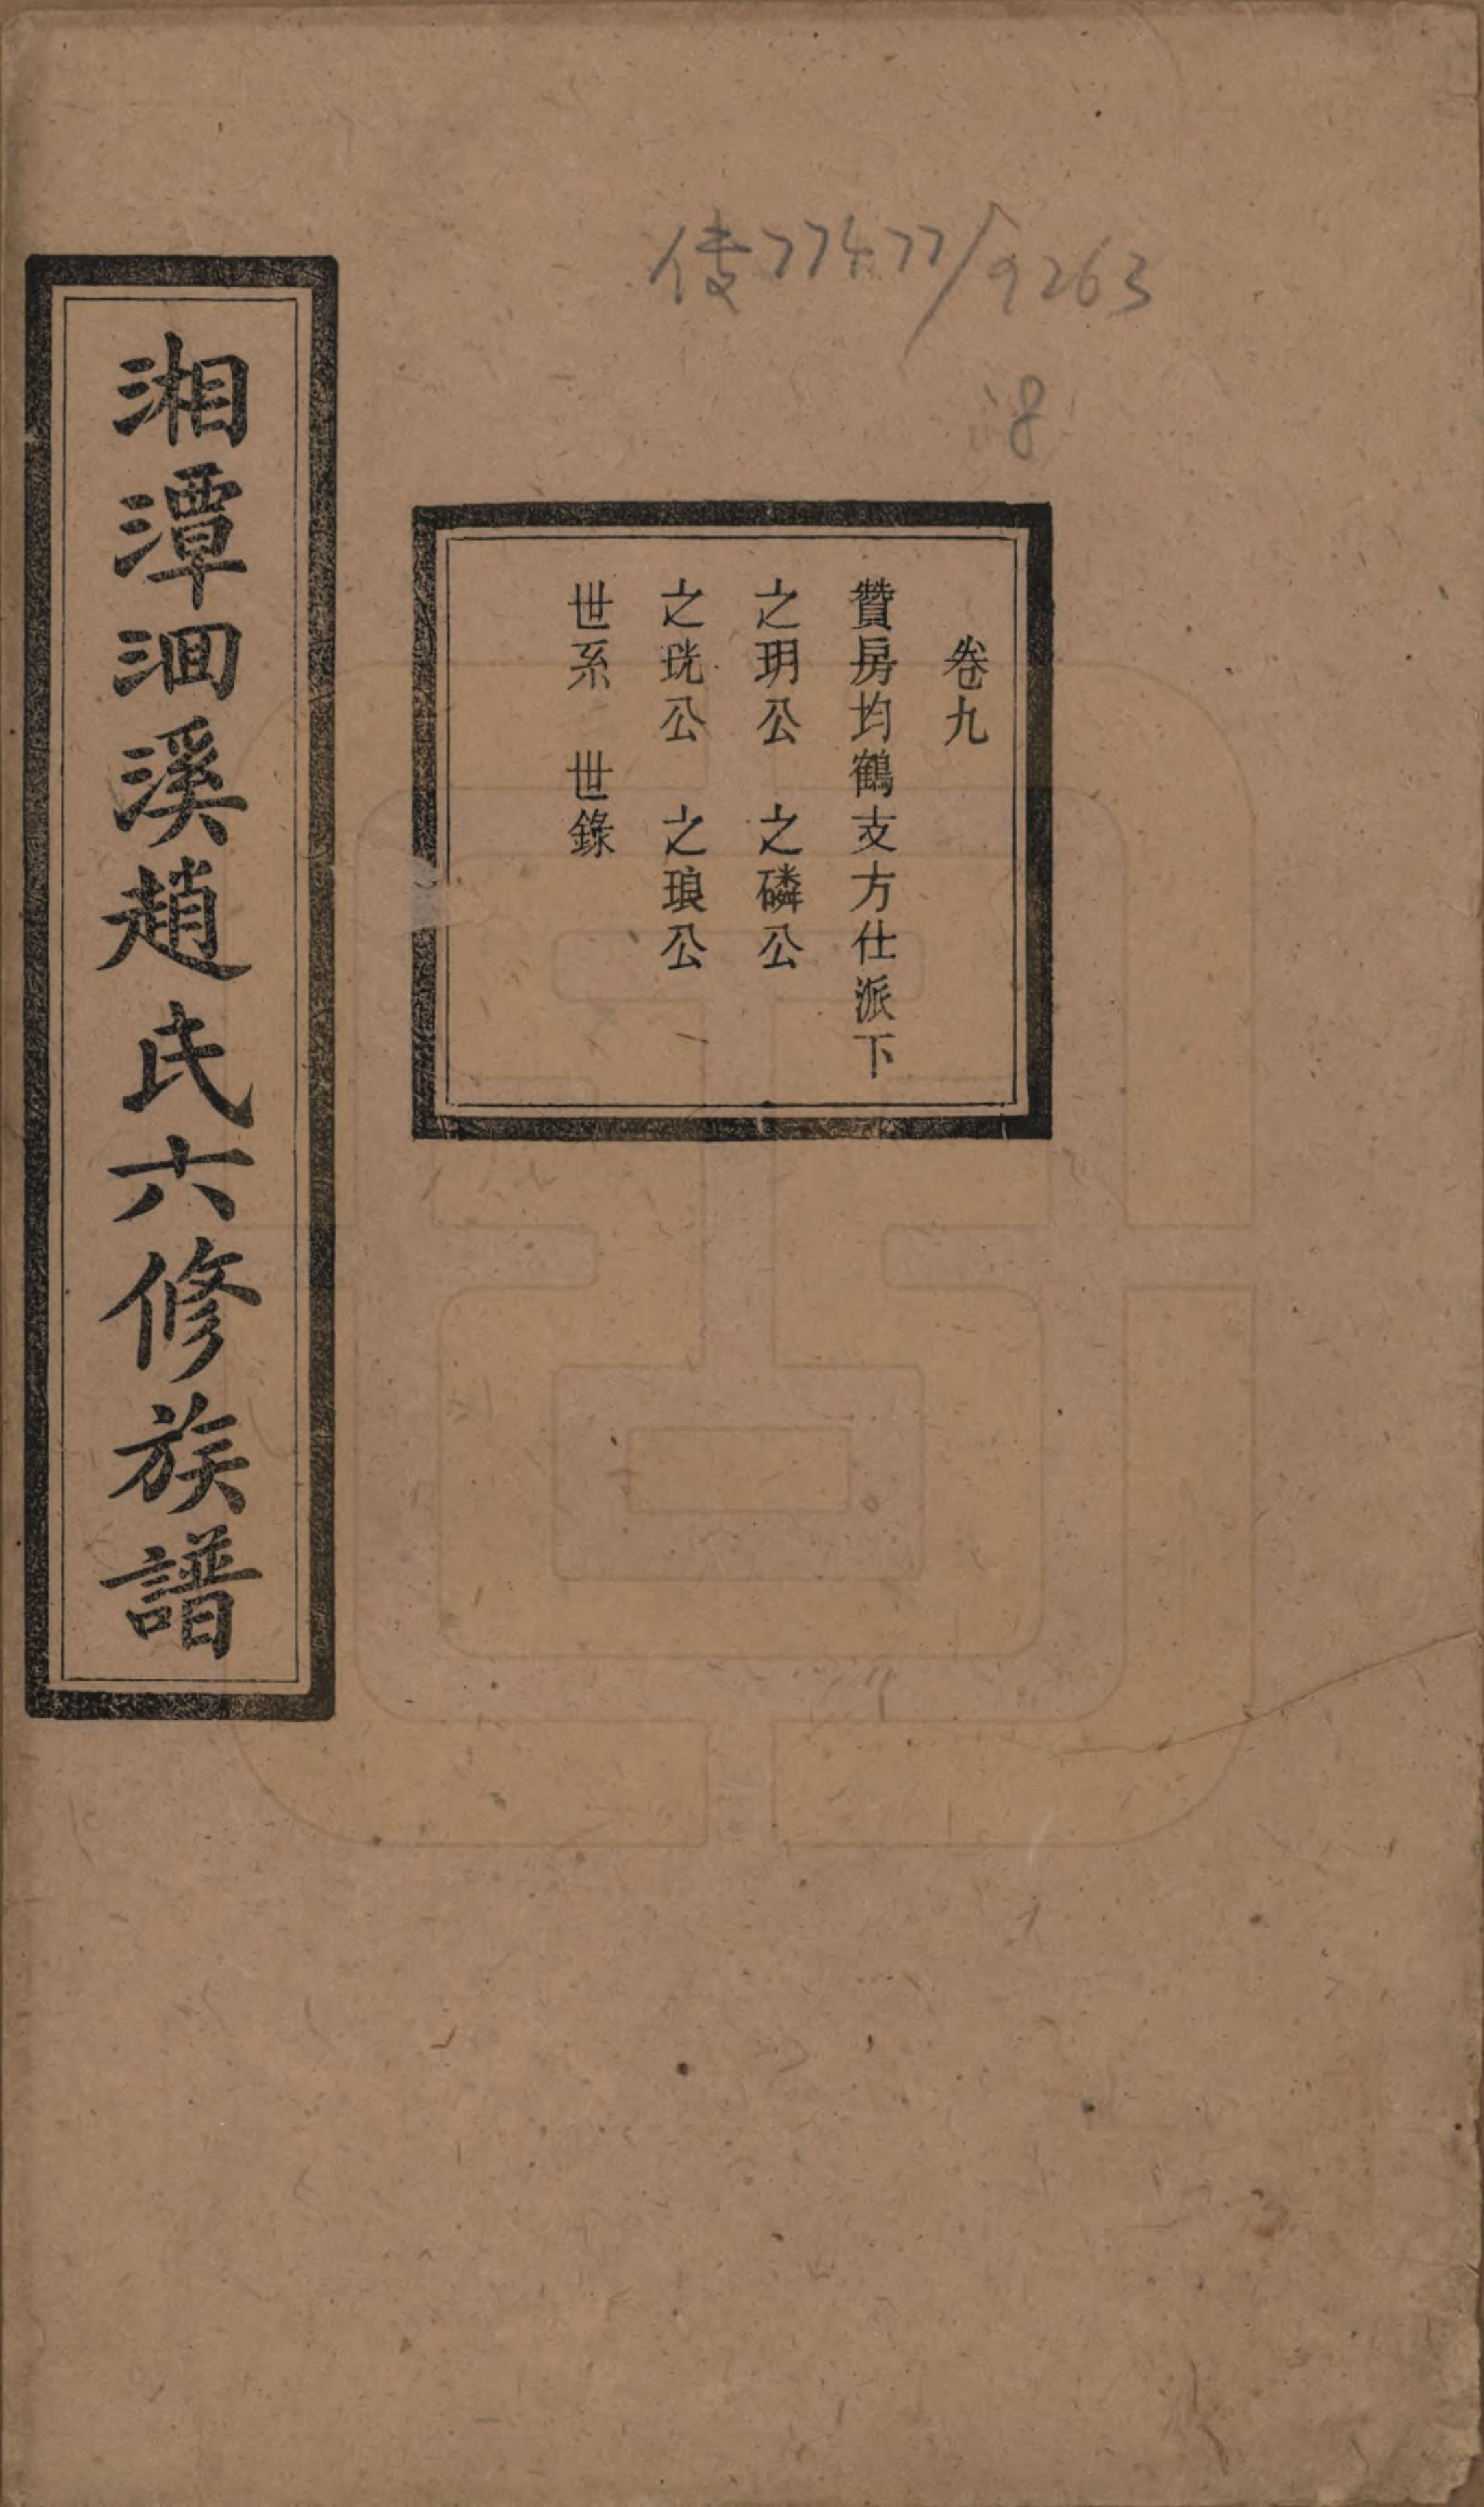 湘潭泗溪趙氏六修族譜
卷九
贊房均鶴支方仕派下
之玥公　之磷公
之珖公　之琅公
世系　世錄
77477/9263
:8